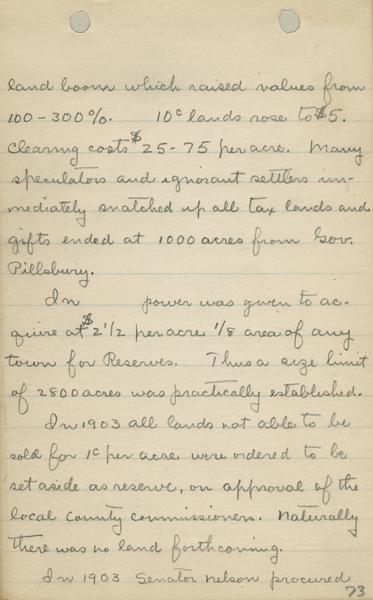 land boom which raised values from
100-300%. 10¢ lands rose to $5.
Clearing costs $25-75 per acre. Many
speculators and ignorant settlers im-
mediately snatched up all tax lands and
gifts ended at 1000 acres from Gov.
Pillsbury.
In power was given to ac-
quire at $2 1/2 per acre 1/8 area of any
town for Reserves. Thus a size limit
of 2800 acres was practically established.
In 1903 all lands not able to be
sold for 1¢ per acre were ordered to be
set aside as reserve, on approval of the
local County Commissioners. Naturally
there was no land forthcoming.
In 1903 Senator Nelson procured
73